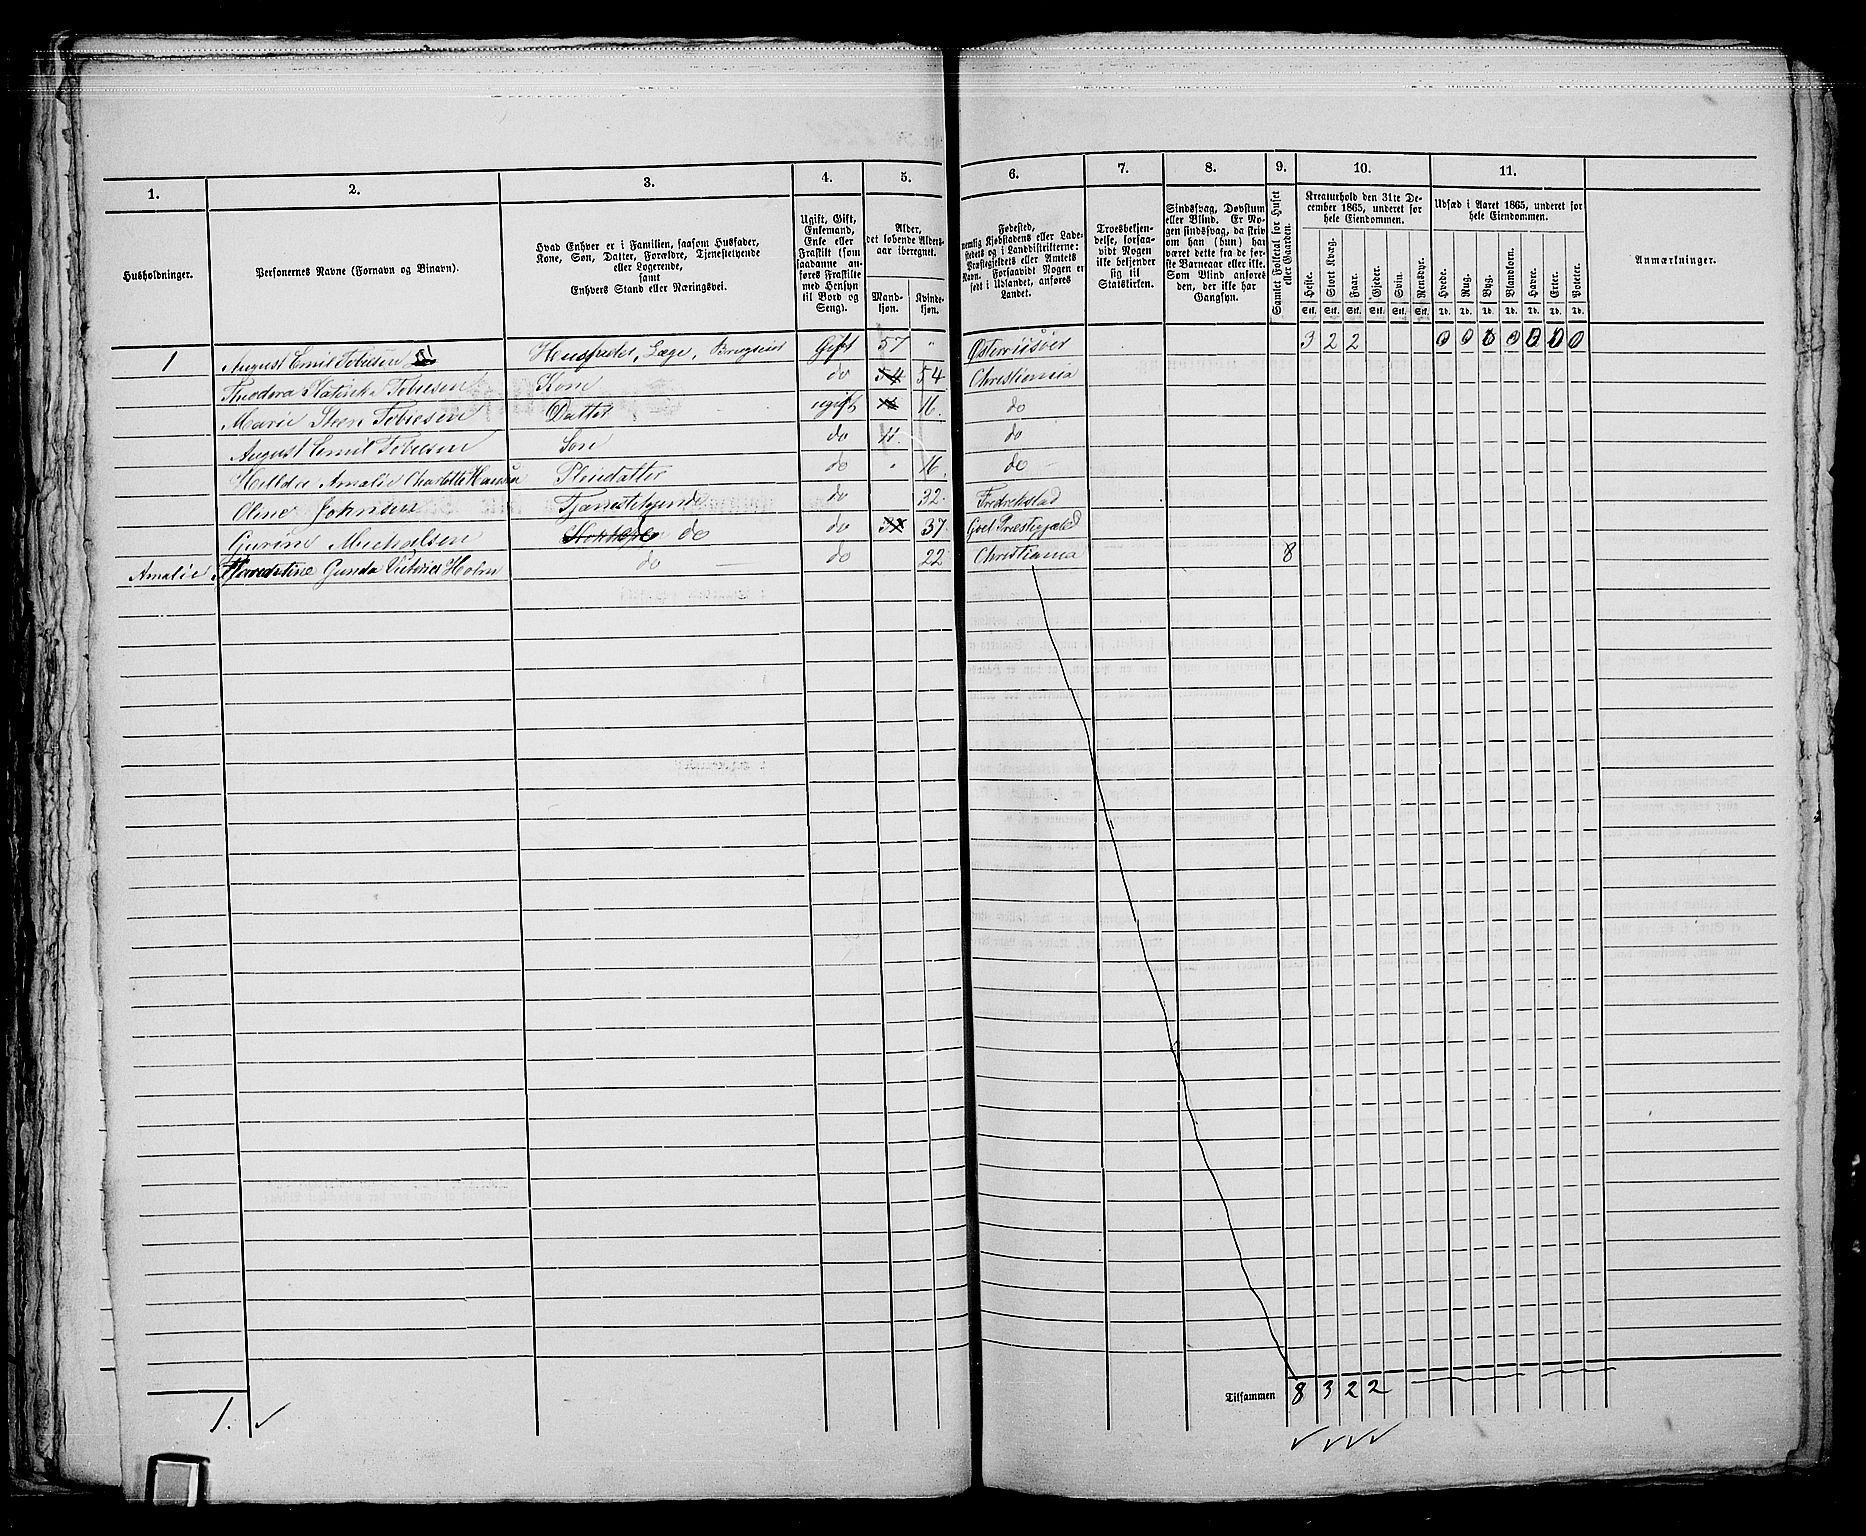 1.
2.
3.
4.
5.
6.
7.
8.
9.
10.
11.
Husholdninger.
Personernes Navne (Fornavn og Binavn).
Hvad Enhver er i Familien, saasom Husfader,
Kone, Søn, Datter, Forældre, Tjenestetyende
eller Logerende,
samt
Enhvers Stand eller Næringsvei.
Ugift, Gift,
Enkemand,
Enke eller
Fraskilt (som
saadanne an-
føres Fraskilte
med Hensyn
til Bord og
Seng).
Alder,
det løbende Alders-
aar iberegnet.
Mand-
kjøn.
Kvinde-
kjøn.
Fødested,
nemlig Kjøbstadens eller Lade-
stedets og i Landdistrikterne:
Præstegjeldets eller Amtets
Navn. Forsaavidt Nogen er
født i Udlandet, anføres
Landet.
Troesbekjen-
delse, forsaa-
vidt Nogen
ikke bekjender
sig til
Statskirken.
Sindssvag, Døvstum
eller Blind. Er No-
gen sindssvag, da skriv
om han (hun) har
været dette fra de før-
ste Barneaar eller ikke.
Som Blind anføres
den, der ikke har
Gangsyn.
Samlet Folketal for Huset
eller Gaarden.
Kreaturhold den 31te De-
cember 1865, underet for
hele Eiendommen.
Heste. Stort Kvæg. Faar. Gjeder. Svin. Rensdyr.
Stk. Stk. Stk. Stk. Stk. Stk.
Udsæd i Aaret 1865, underet for
hele Eiendommen.
Hvede. Rug. Byg. Blandkorn. Havre. Erter. Poteter.
Td. Td. Td. Td. Td. Td. Td.
Anmærkninger.
1 August Emil Tobiesen Husfader, Læge, Gift 57 " Østerriisøer 3 2 2 0 0 0 0 0 0 0
Theodora Kathinka Tobiesen Kone do 54 54 Christiania
Marie Steen Tobiesen Datter ugift 16 16. do
August Emil Tobiesen Søn do 11. do
Hilda Amalie Charlotte Hansen Pleiedatter do " 16. do
Oline Johnsen Tjenestetyende do 32. Fredrikstad
Gurine Michaelsen do do 37. Præstegjeld
Amalie Gunda Victoria Holm do do 22 Christiania 8
Tilsammen 8 3 2 2
1. ✓
✓ ✓ ✓ ✓